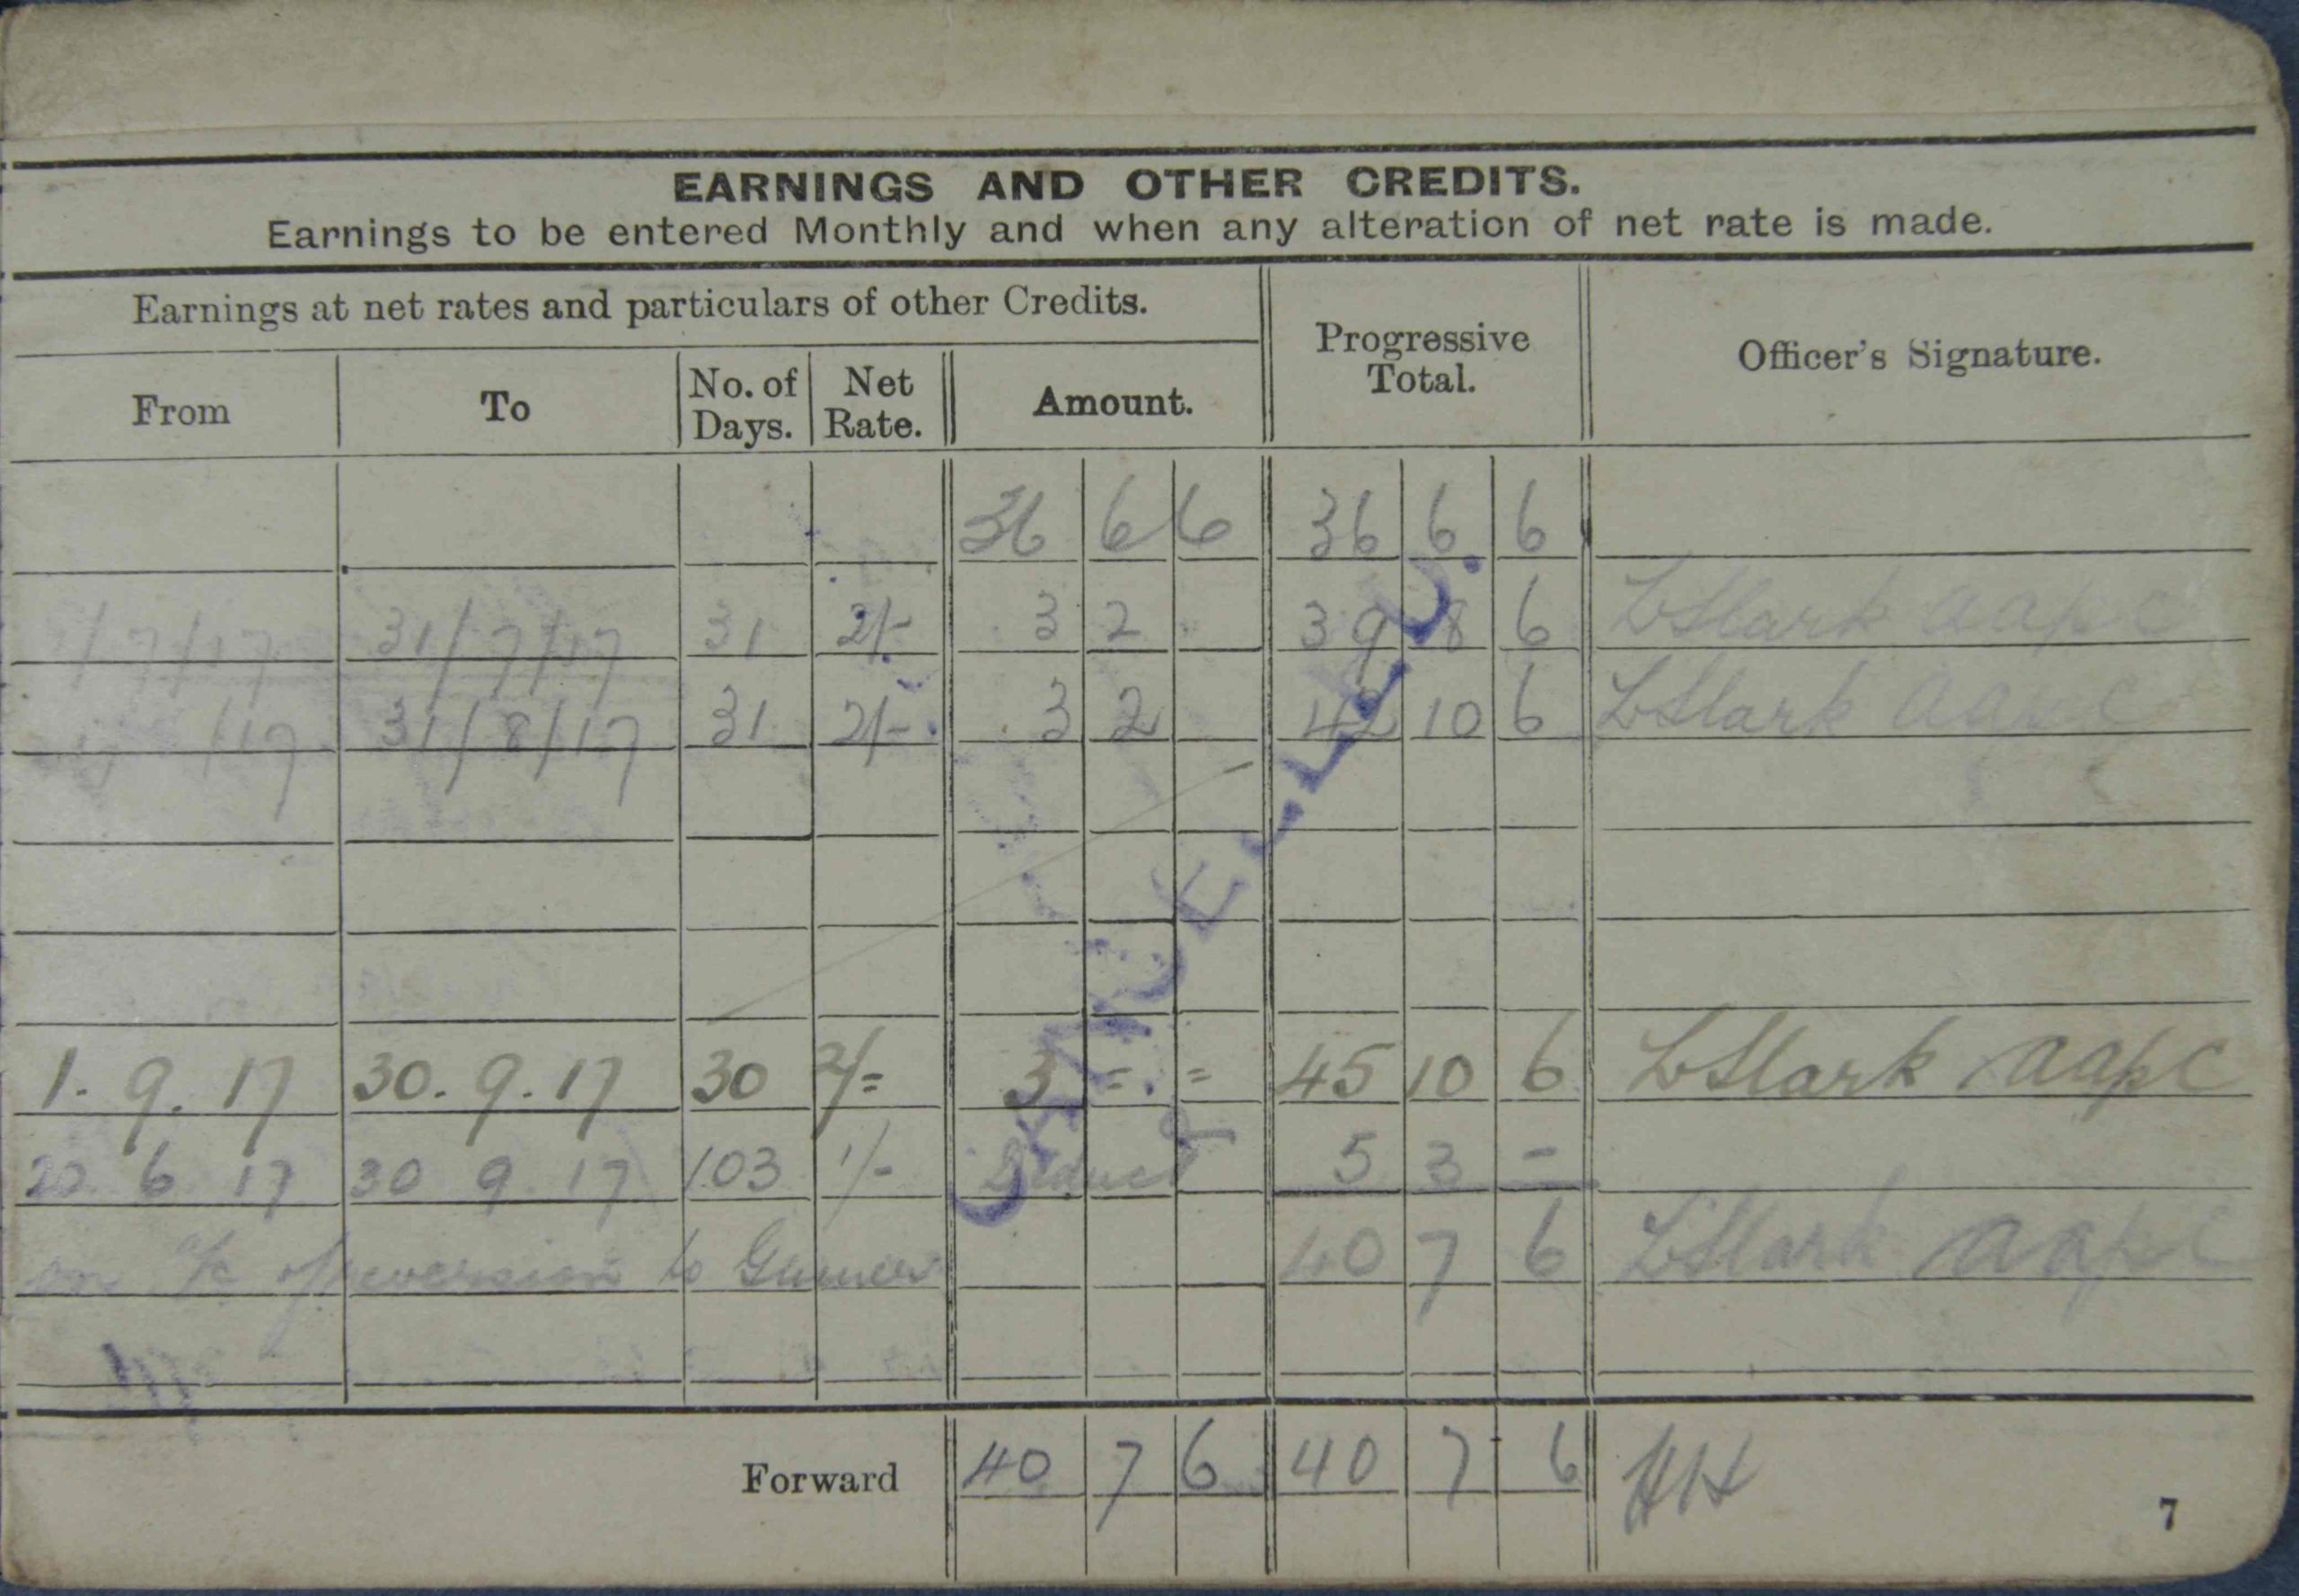 EARNINGS AND OTHER CREDITS.
Earnings to be entered Monthly and when any alteration of net rate is made.
Earnings at net rates and particulars of other Credits.
Progressive Total.
Officer's Signature.
From To No. of Days. Net Rate. Amount.
36 6 6 36 6 6
1/7/17 31/7/17 31 2/- 3 2 - 39 8 6 aapc
/17 31/8/17 31 2/- 3 2 42 10 6 aapc
CANCELLED.
1. 9. 17 30. 9. 17 30 2/= 3 = = 45 10 6 aapc
20 6 17 30 9 17 103 1/- Deduct 5 3 -
on a/c of reversion to Gunner 40 7 6 aapc
Forward 40 7 6 40 7 6 HH
7